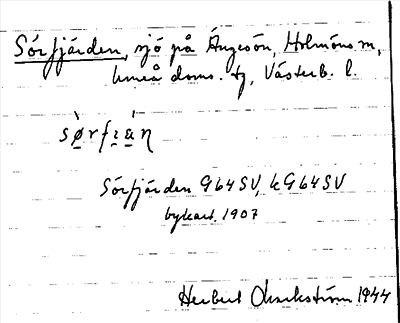 Sörfjärden, sjö på Ängesön, Holmöns m,
Umeå doms. tg, Västerb. l.
sø̀rfı̣á̱ṇ
Sörfjärden G64SV, kG64SV
bykart. 1907
Herbert 1944